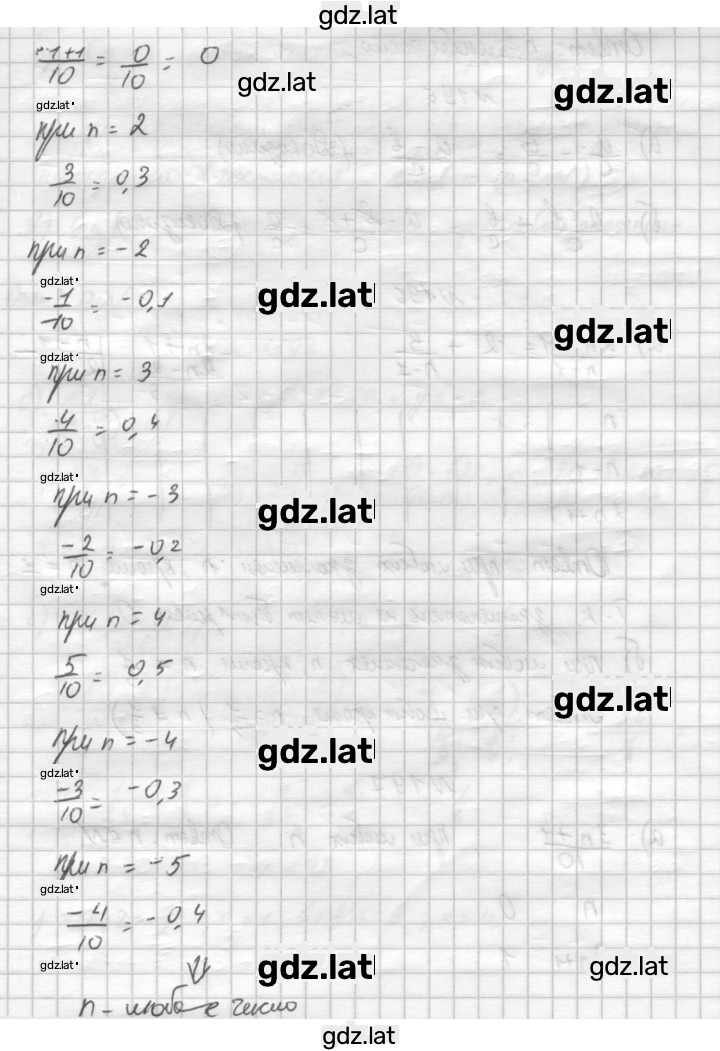 gdz.lat
-1+1/10 = 0/10 = 0
gdz.lat
gdz.lat
gdz.lat
при n = 2
3/10 = 0,3
при n = -2
gdz.lat
gdz.lat
-1/10 = -0,1
gdz.lat
gdz.lat
при n = 3
4/10 = 0,4
gdz.lat
при n = -3
gdz.lat
-2/10 = -0,2
gdz.lat
при n = 4
5/10 = 0,5
gdz.lat
при n = -4
gdz.lat
gdz.lat
-3/10 = -0,3
при n = -5
gdz.lat
-4/10 = -0,4
gdz.lat
gdz.lat
gdz.lat
n - любое число
gdz.lat